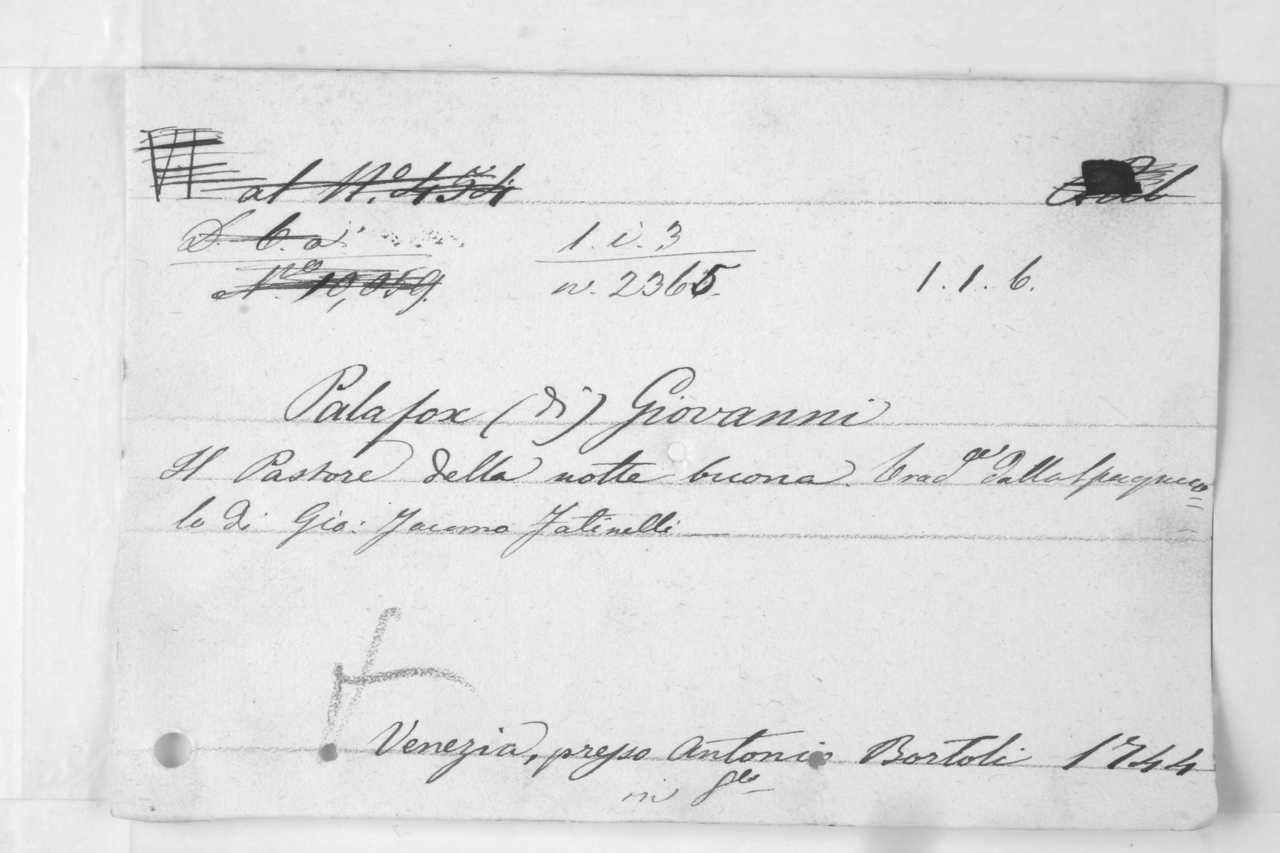 VI al N.o 454
D. 6. a. 1. i. 3
N.o 10,059. n. 2365 1. 1. 6.
Palafox (di) Giovanni
Il Pastore della notte buona. Trad.ne dallo Spagnuo=
lo di Gio: Jacomo Fatinelli
Venezia, presso Antonio Bortoli 1744
in